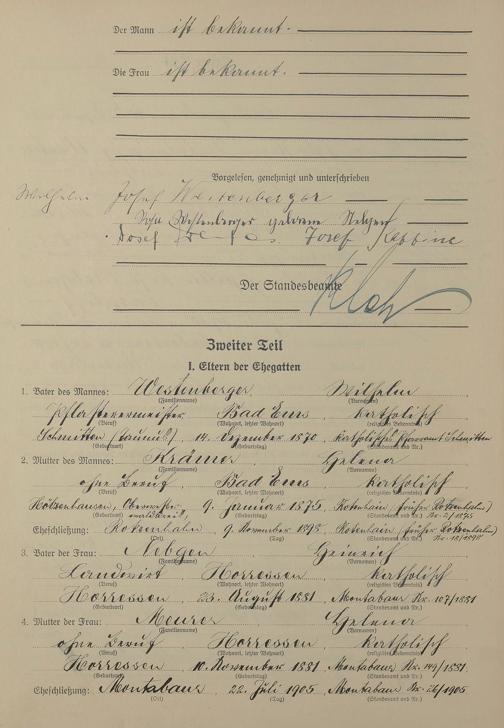 Der Mann ist bekannt.
Die Frau ist bekannt.
Vorgelesen, genehmigt und unterschrieben
Wilhelm Josef Westenberger
Westenberger geborene Nebgen
Josef Josef
Der Standesbeamte
Zweiter Teil
I. Eltern der Ehegatten
1. Vater des Mannes: Westenberger Wilhelm
(Familienname) (Vornamen)
Pflasterermeister Bad Ems katholisch
(Beruf) (Wohnort, letzter Wohnort) (religiöses Bekenntnis)
Schmitten (Taunus), 14. Dezember 1870, Katholisches Pfarramt Schmitten
(Geburtsort) (Geburtstag) (Standesamt und Nr.)
2. Mutter des Mannes: Krämer Helena
(Familienname) (Vornamen)
ohne Beruf Bad Ems katholisch
(Beruf) (Wohnort, letzter Wohnort) (religiöses Bekenntnis)
9. Januar 1875, (früher Rotzenhahn)
(Geburtsort) (Geburtstag) (Standesamt und Nr.)
Eheschließung: Rotzenhahn 9. November 1898 (früher Rotzenhahn)
(Ort) (Tag) (Standesamt und Nr.)
3. Vater der Frau: Nebgen Heinrich
(Familienname) (Vornamen)
Landwirt Horressen katholisch
(Beruf) (Wohnort, letzter Wohnort) (religiöses Bekenntnis)
Horressen 23. August 1881 Montabaur Nr. 107/1881
(Geburtsort) (Geburtstag) (Standesamt und Nr.)
4. Mutter der Frau: Meurer Helena
(Familienname) (Vornamen)
ohne Beruf Horressen katholisch
(Beruf) (Wohnort, letzter Wohnort) (religiöses Bekenntnis)
Horressen 10. November 1881 Montabaur Nr. 144/1881
(Geburtsort) (Geburtstag) (Standesamt und Nr.)
Eheschließung: Montabaur 22. Juli 1905 Montabaur Nr. 26/1905
(Ort) (Tag) (Standesamt und Nr.)